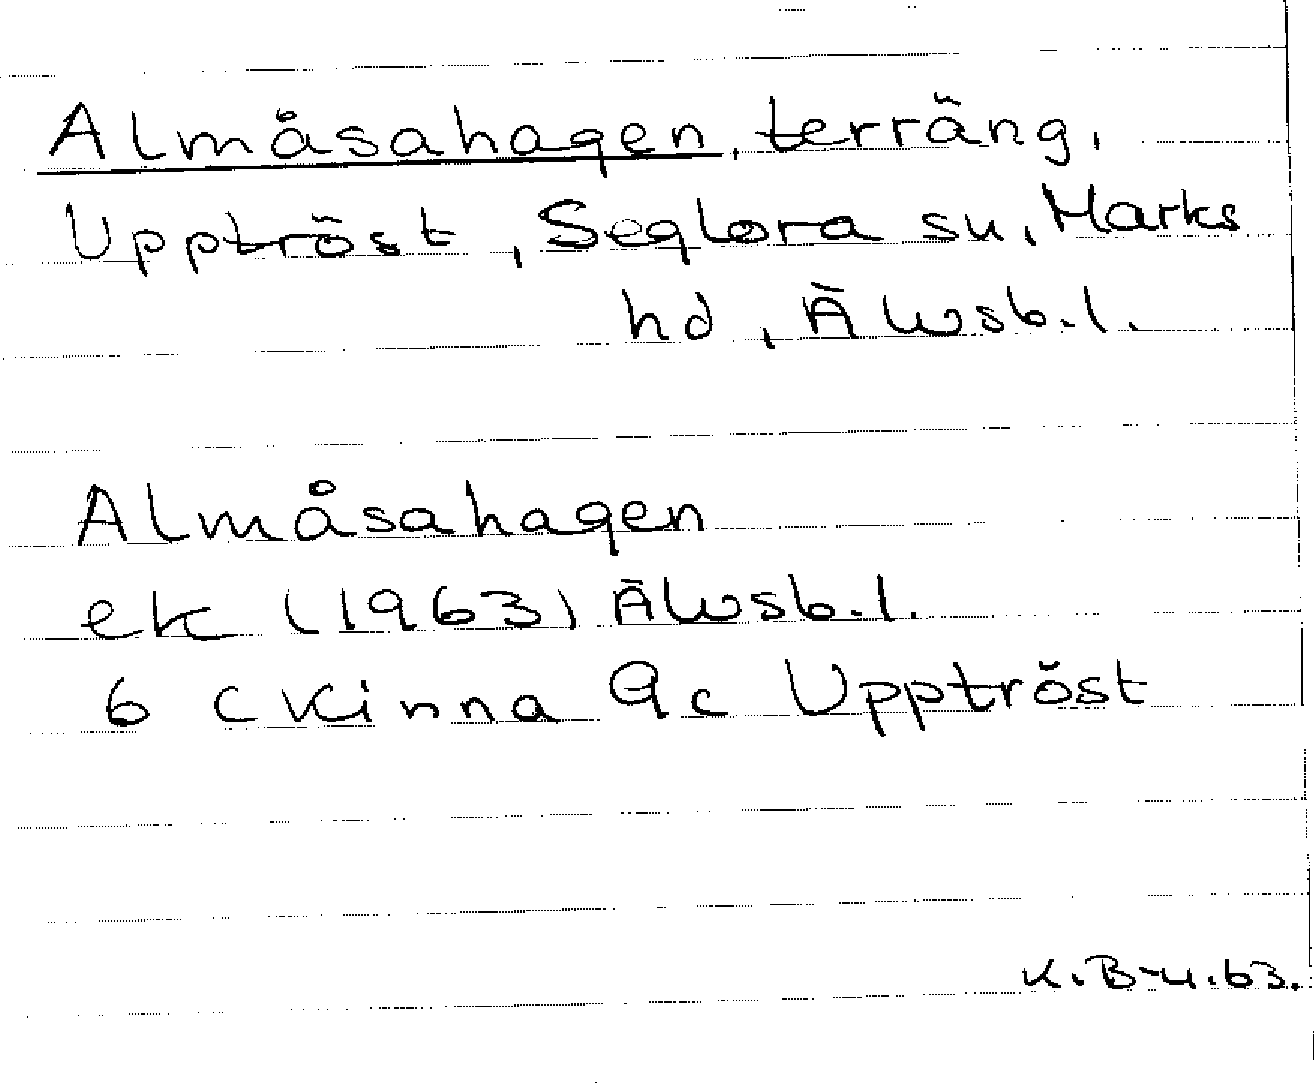 Almåsahagen, terräng,
Upptröst, Seglora sn, Marks
hd, Älvsb.l.
Almåsahagen
ek (1963) Älvsb.l.
6 C Kinna 9c Upptröst
K.B-n.63.